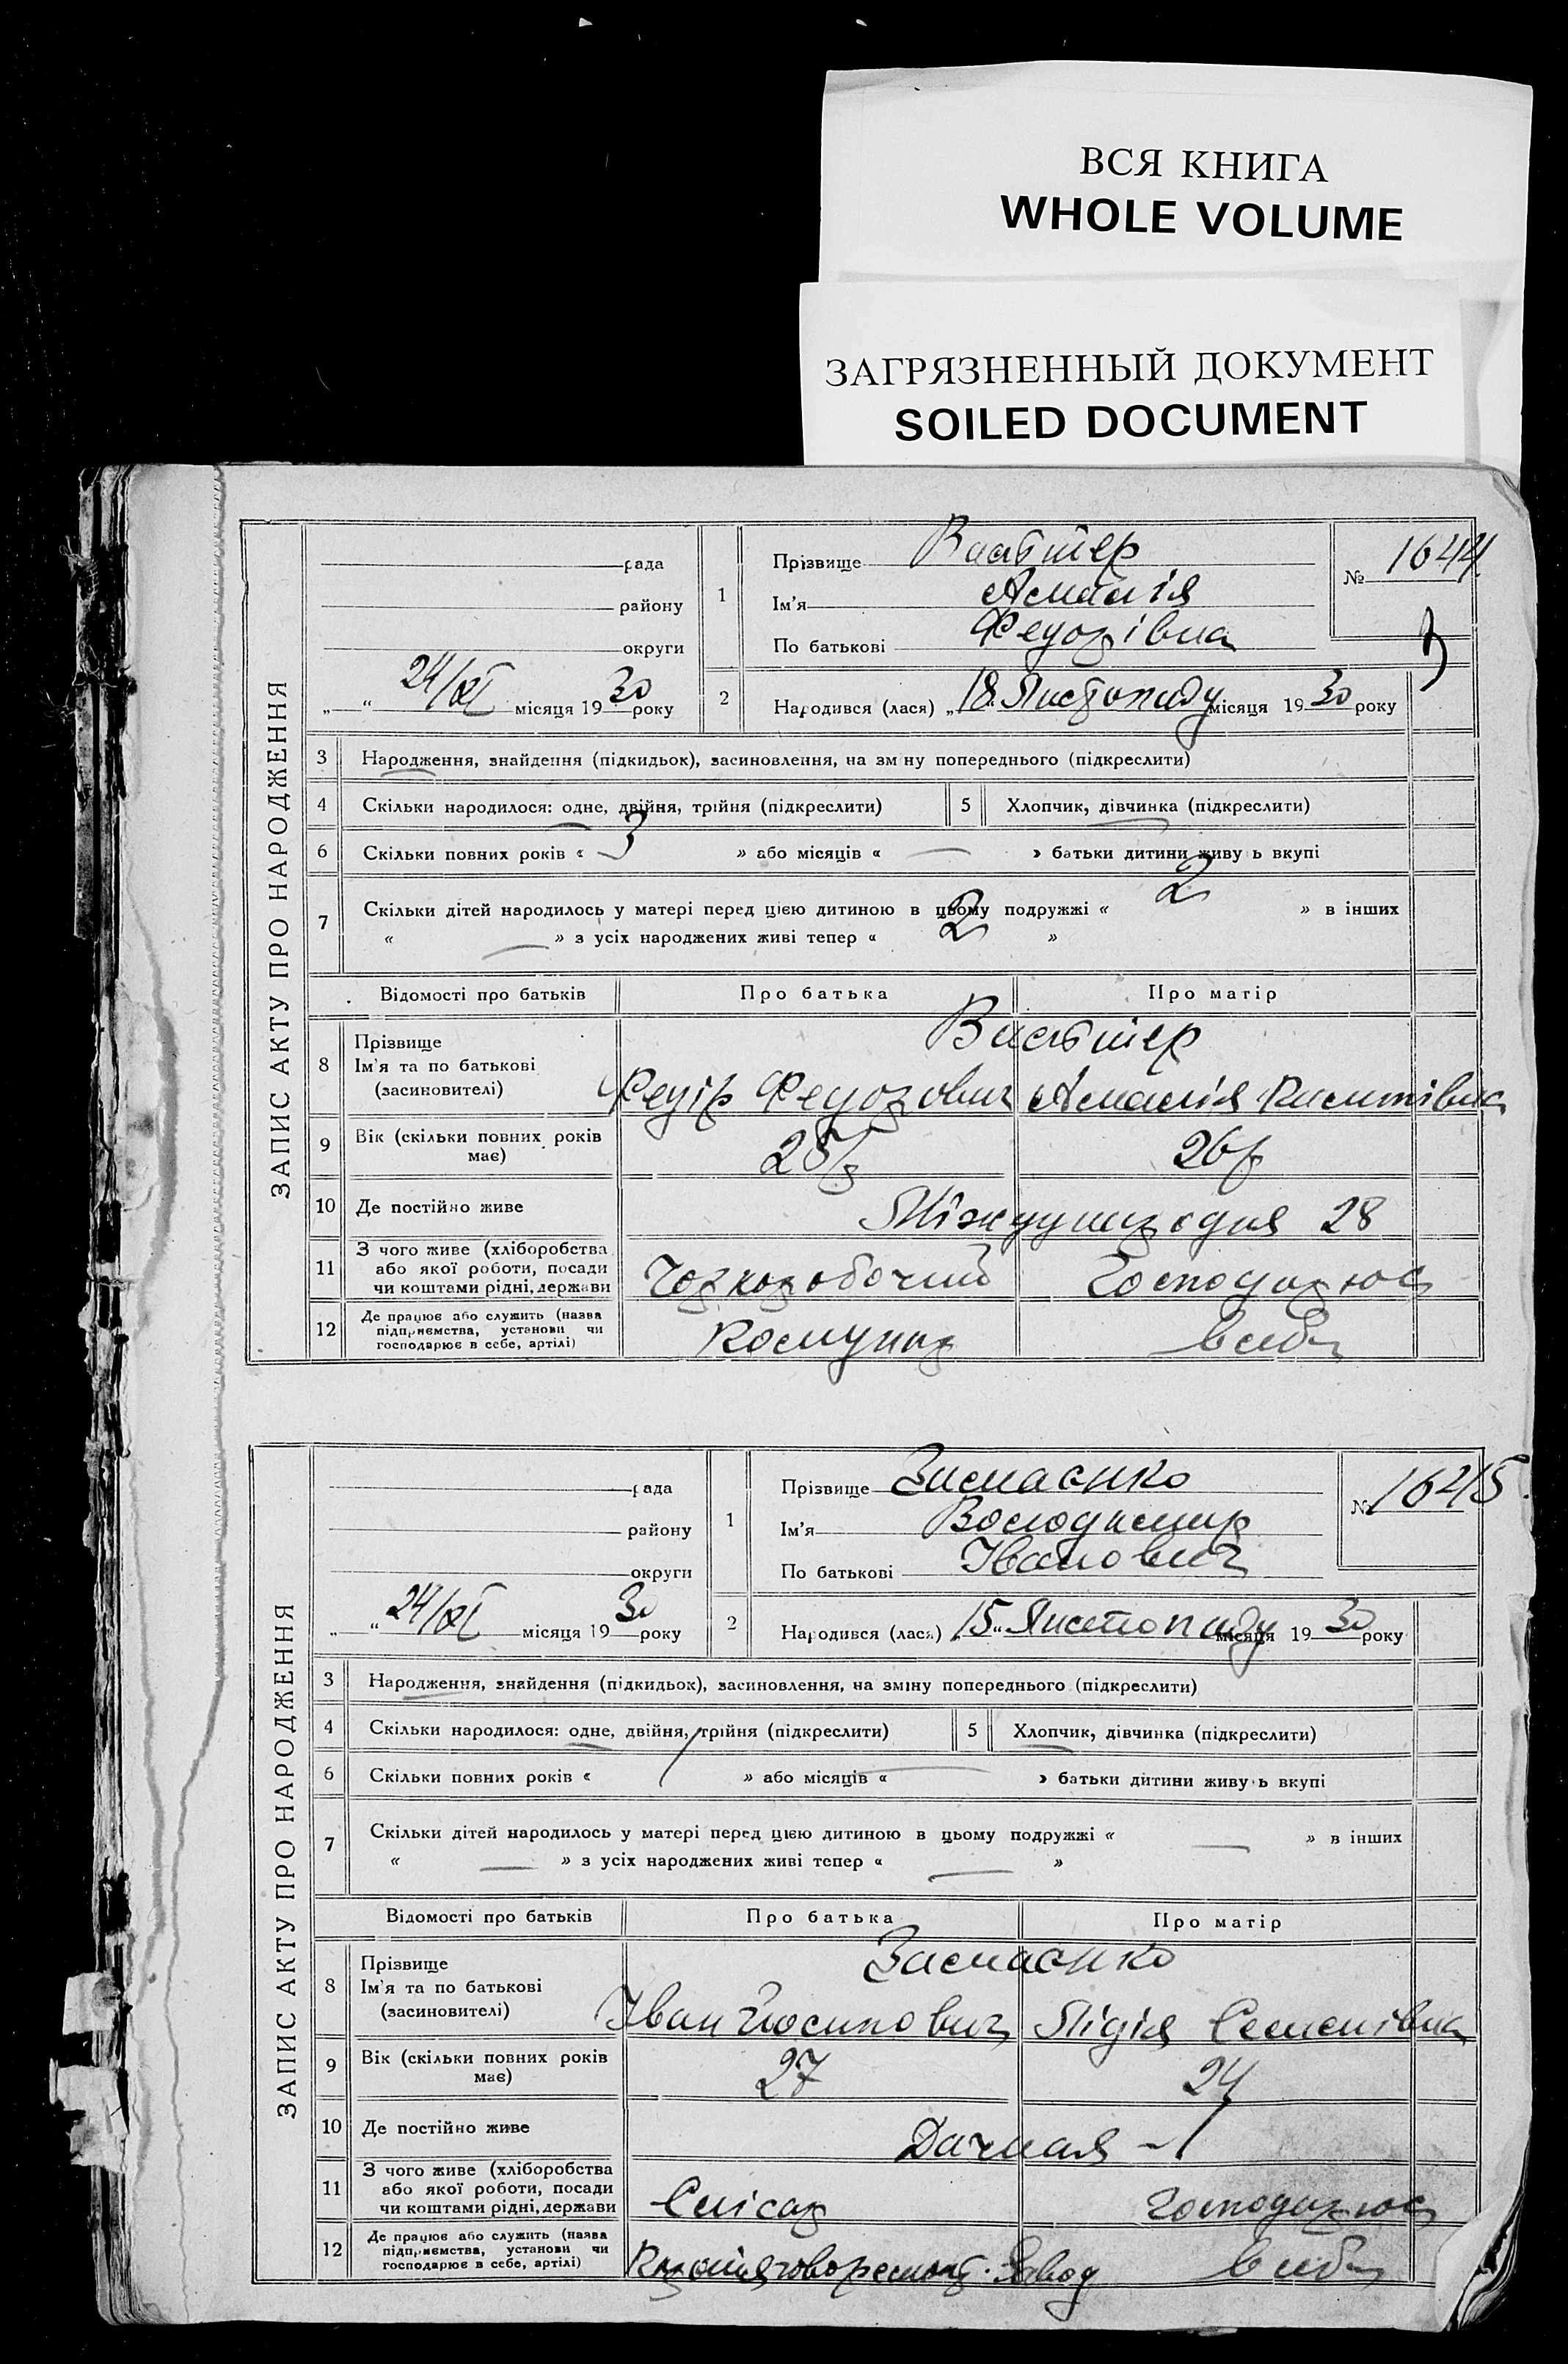 ВСЯ КНИГА
WHOLE VOLUME
ЗАГРЯЗНЕННЫЙ ДОКУМЕНТ
SOILED DOCUMENT
ЗАПИС АКТУ ПРО НАРОДЖЕННЯ
рада
району
округи
„ “ 24/XI місяця 1930 року
1
Прізвище
Ім'я Амалія
По батькові Федорівна
№ 1644
2
Народився (лася) „18 Листопаду місяця 1930 року
3 Народження, знайдення (підкидьок), засиновлення, на зміну попереднього (підкреслити)
4 Скільки народилося: одне, двійня, трійня (підкреслити)
5 Хлопчик, дівчинка (підкреслити)
6 Скільки повних років « 3 » або місяців « — » батьки дитини живуть вкупі
7 Скільки дітей народилось у матері перед цією дитиною в цьому подружжі « 2 » в інших
« — » з усіх народжених живі тепер « 2 »
Відомості про батьків Про батька Про матір
8 Прізвище
Ім'я та по батькові
(засиновителі)
Федір Федорович Амалія
9 Вік (скільки повних років має) 28 р 26 р
10 Де постійно живе 28
11 З чого живе (хліборобства або якої роботи, посади чи коштами рідні, держави Чорноробочий Господарює
12 Де працює або служить (назва підприємства, установи чи господарює в себе, артілі) Комунар в себе
ЗАПИС АКТУ ПРО НАРОДЖЕННЯ
рада
району
округи
„ “ 24/XI місяця 1930 року
1
Прізвище
Ім'я Володимир
По батькові Іванович
№ 1645.
2
Народився (лася) „15“ Листопаду місяця 1930 року
3 Народження, знайдення (підкидьок), засиновлення, на зміну попереднього (підкреслити)
4 Скільки народилося: одне, двійня, трійня (підкреслити)
5 Хлопчик, дівчинка (підкреслити)
6 Скільки повних років « 1 » або місяців « — » батьки дитини живуть вкупі
7 Скільки дітей народилось у матері перед цією дитиною в цьому подружжі « — » в інших
« — » з усіх народжених живі тепер « — »
Відомості про батьків Про батька Про матір
8 Прізвище
Ім'я та по батькові
(засиновителі)
Іван Йосипович Лідія Семенівна
9 Вік (скільки повних років має) 27 24
10 Де постійно живе Дачная - 1
11 З чого живе (хліборобства або якої роботи, посади чи коштами рідні, держави Слісар Господарює
12 Де працює або служить (назва підприємства, установи чи господарює в себе, артілі) Завод в себе